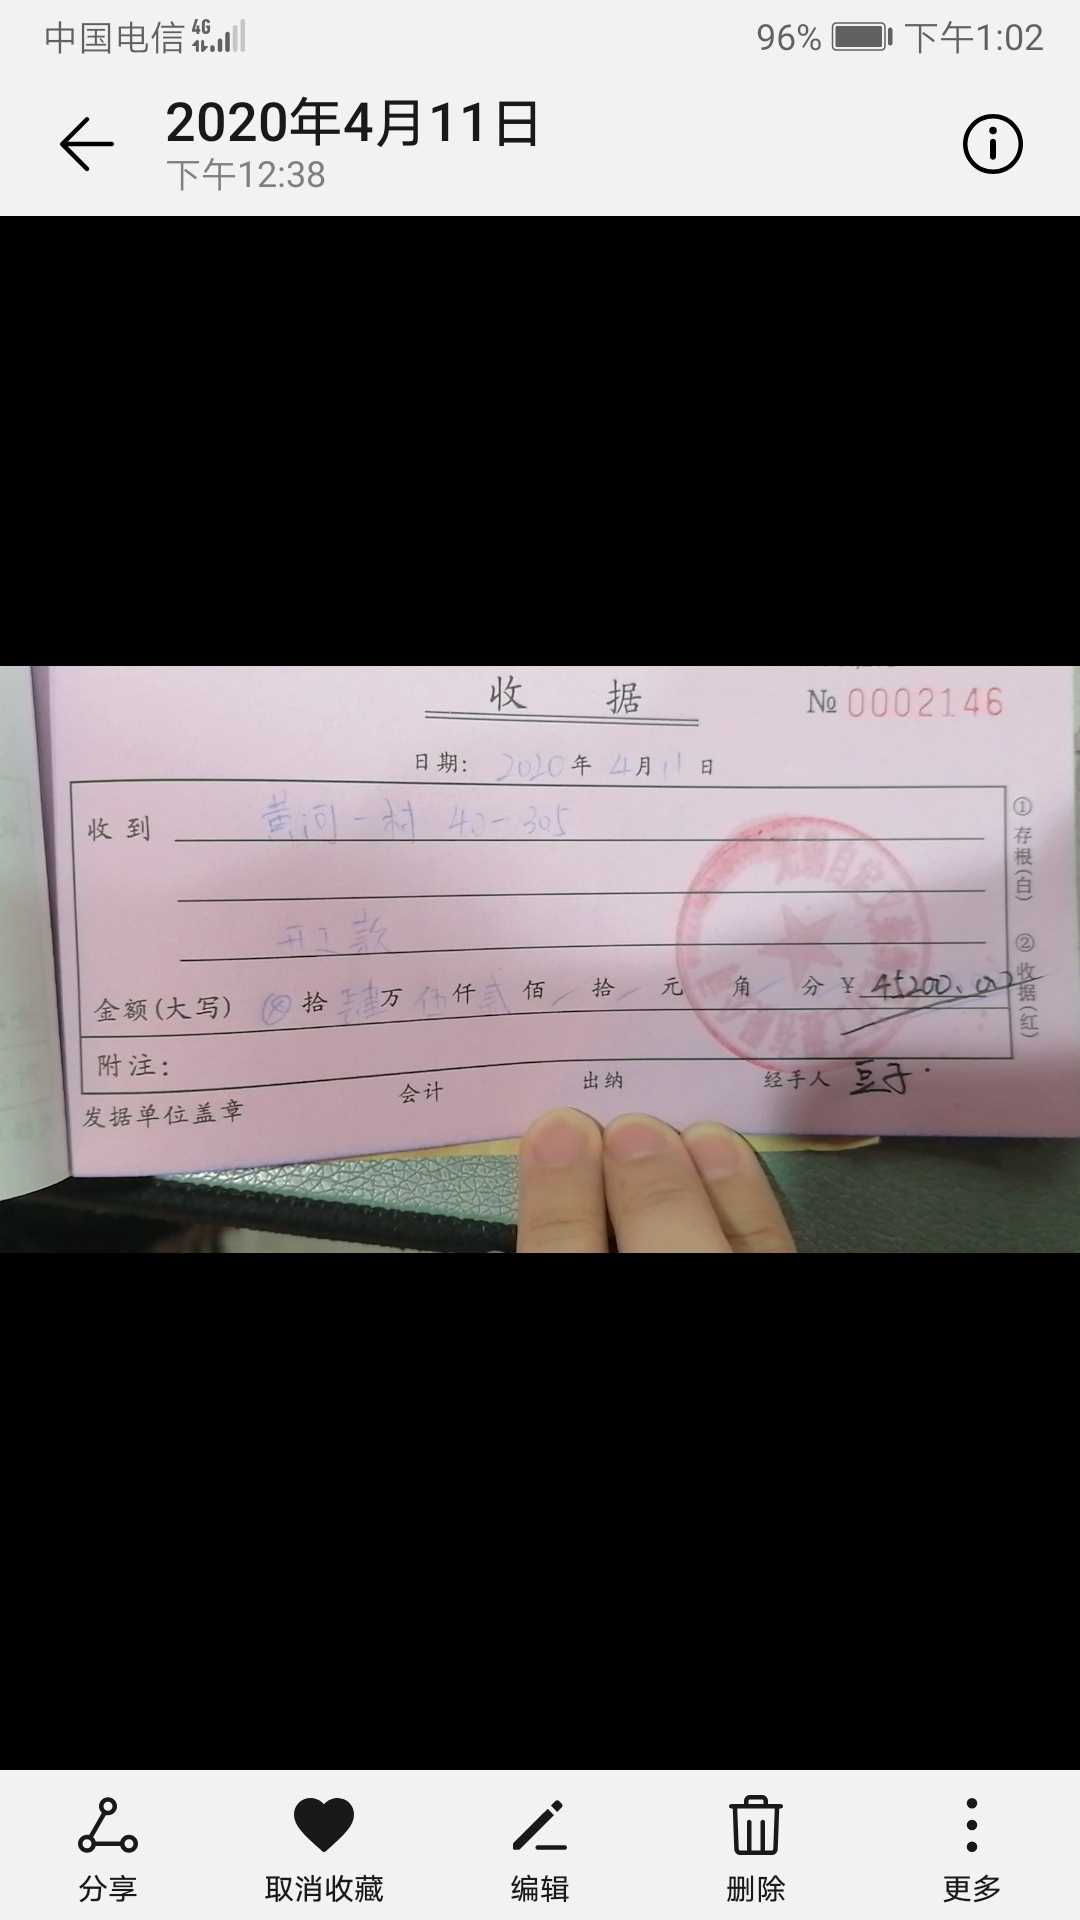 中国电信 4G 96% 下午1:02
2020年4月11日
下午12:38
收 据
№ 0002146
日期: 2020年4月11日
收到 黄河一村 40-305
开工款
金额(大写) ⊗拾肆万伍仟贰佰/拾/元 角/分 ¥ 45200.00
附注:
会计 出纳 经手人 豆子.
发据单位盖章
①存根(白) ②收据(红)
分享 取消收藏 编辑 删除 更多